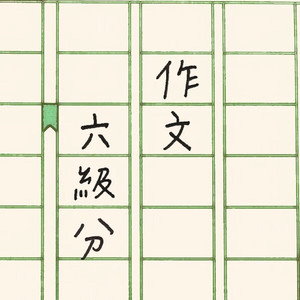 作文
六級分